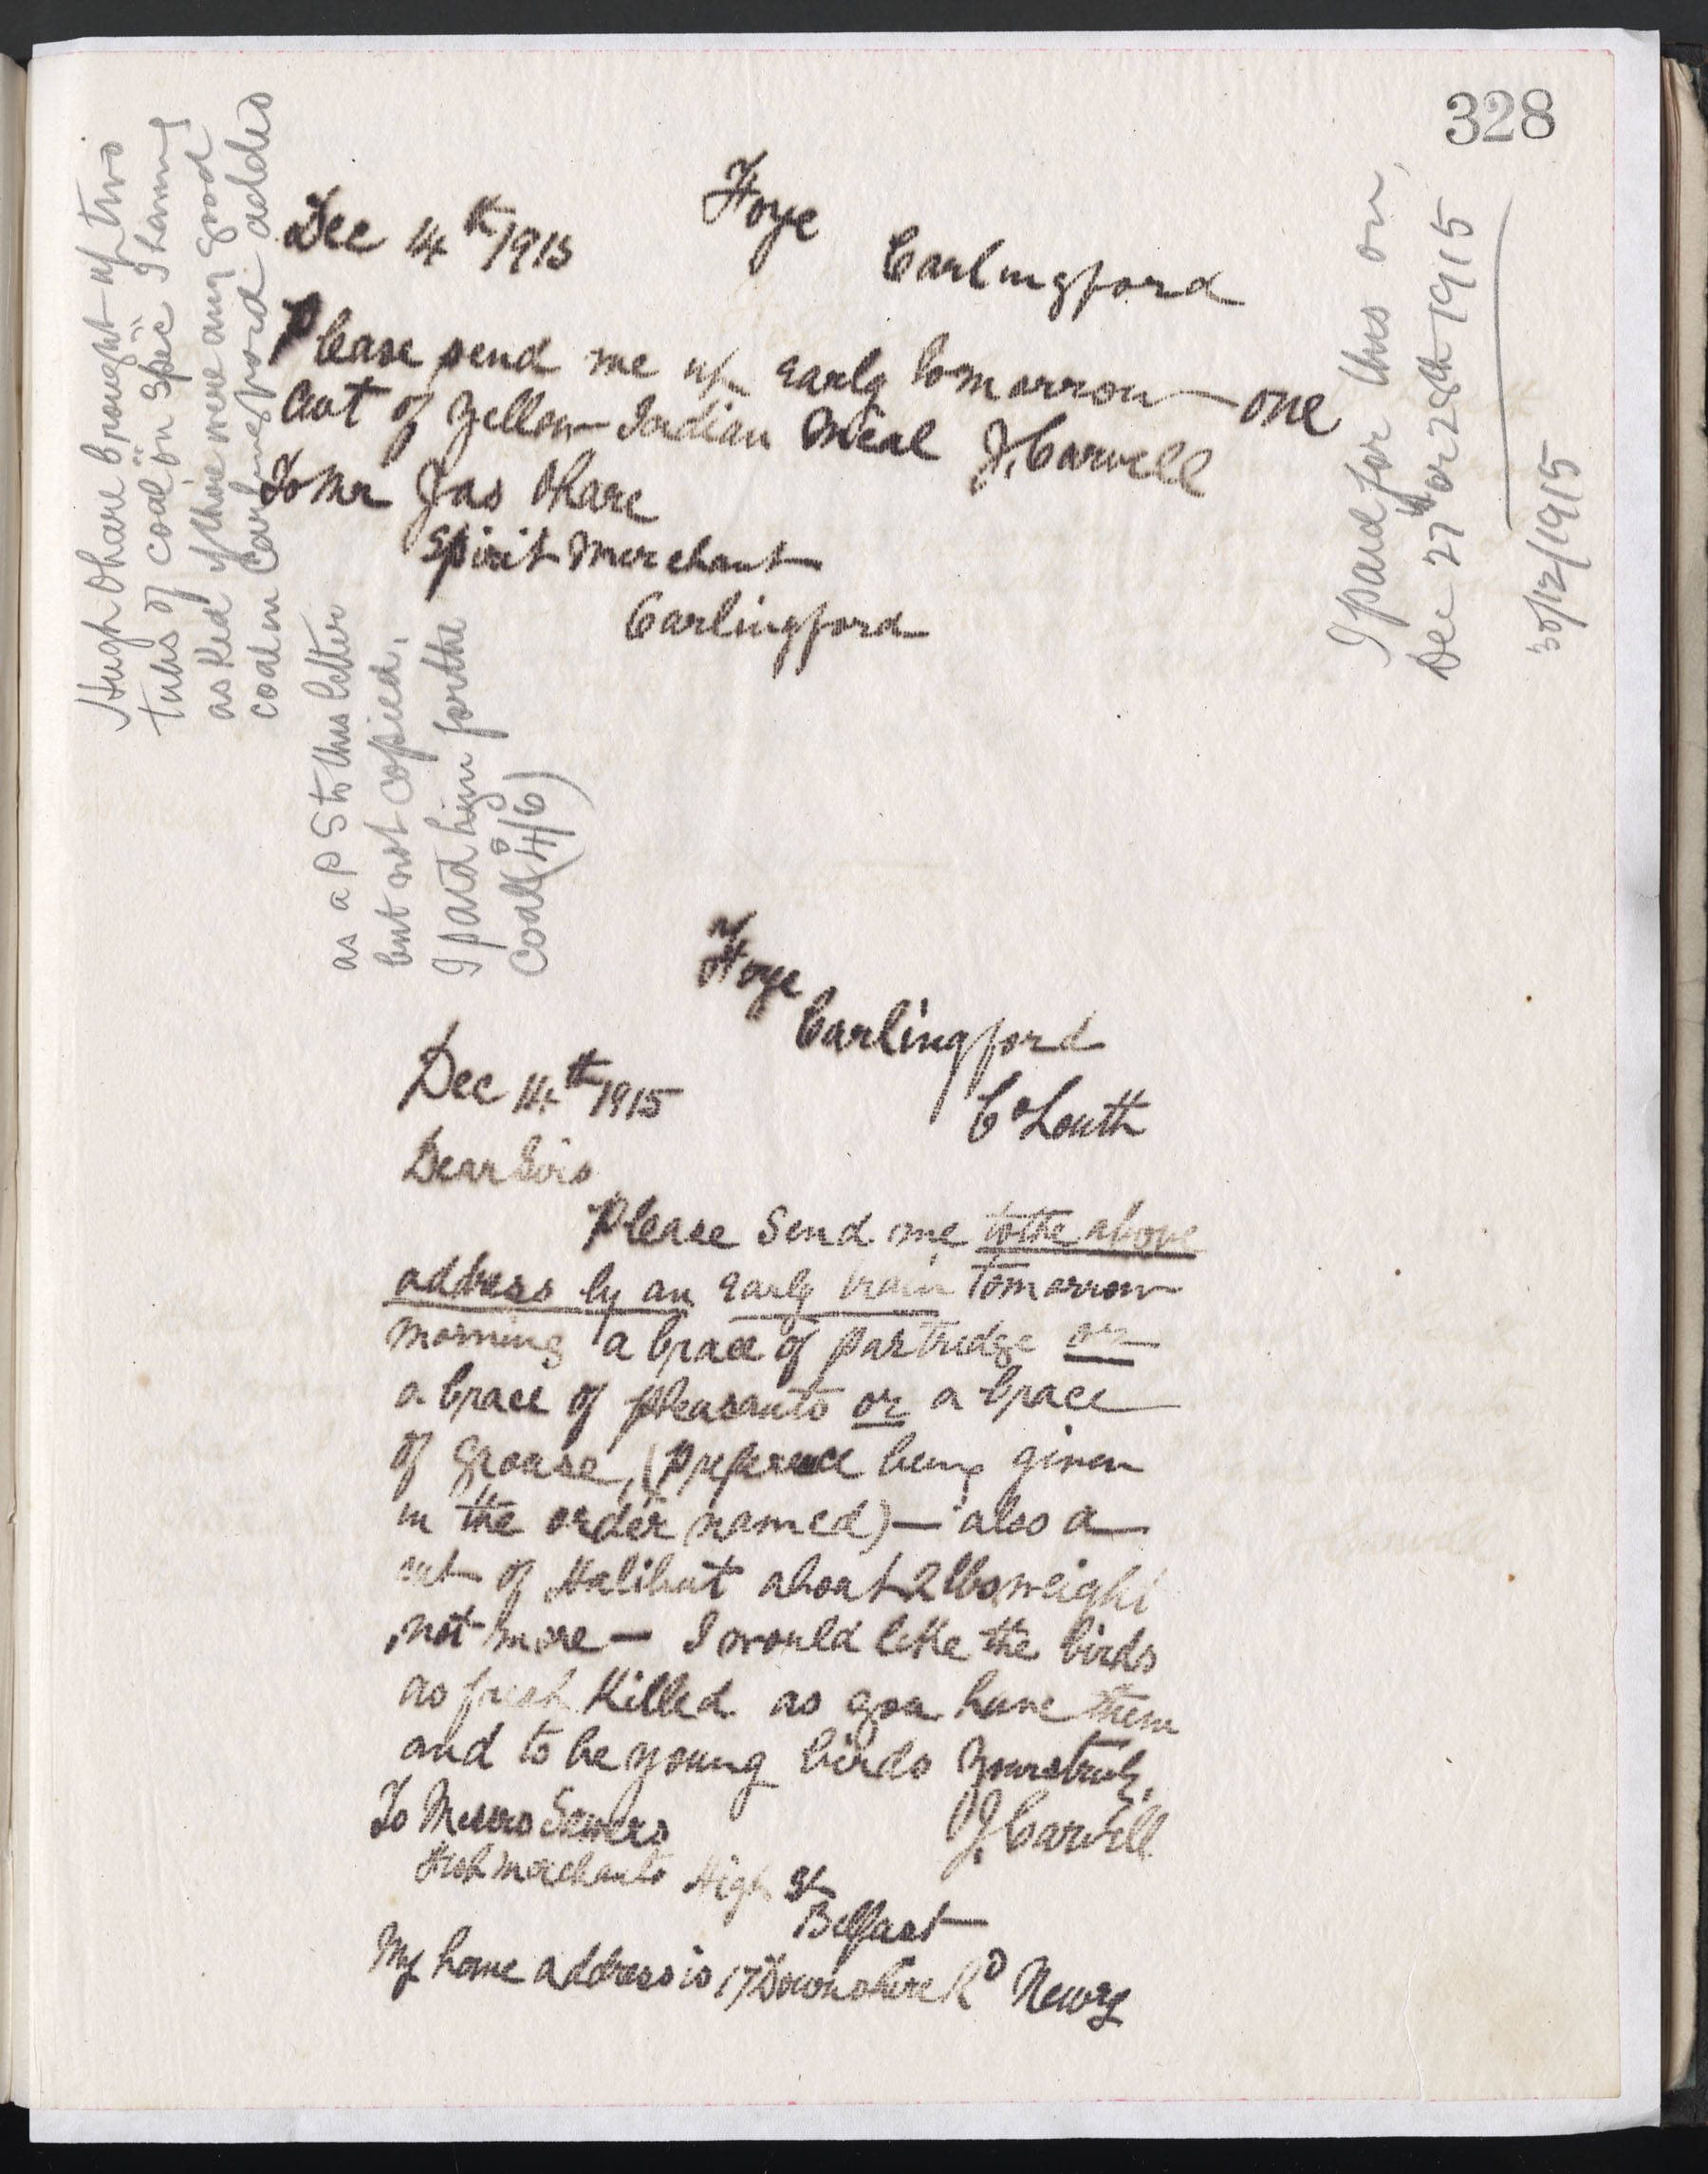 328
Foye
Carlingford
Dec 14th 1915
Please send me up early tomorrow one
cwt of yellow Indian Meal J. Carvill
To Mr Jas Ohare
Spirit Merchant
Carlingford
Hugh Ohare brought up two
tubs of coal "on spec" I having
asked if there were any good
coal in Carlingford added
as a P S to this letter
but not copied.
I paid him for the
coal (4/6)
I paid for this on
Dec 27th or 28th 1915
30/12/1915
Foye
Carlingford
Co Louth
Dec 14th 1915
Dear Sirs
Please send me to the above
address by an early train tomorrow
morning a brace of partridge or
a brace of pheasants or a brace
of grouse, (preference being given
in the order named) — also a
cut of Halibut about 2 lbs weight
not more — I would like the birds
as fresh killed as you have them
and to be young birds Yours truly,
J. Carvill
To Messrs Sawers
Fish merchants High St
Belfast
My home address is 17 Downshire Rd Newry